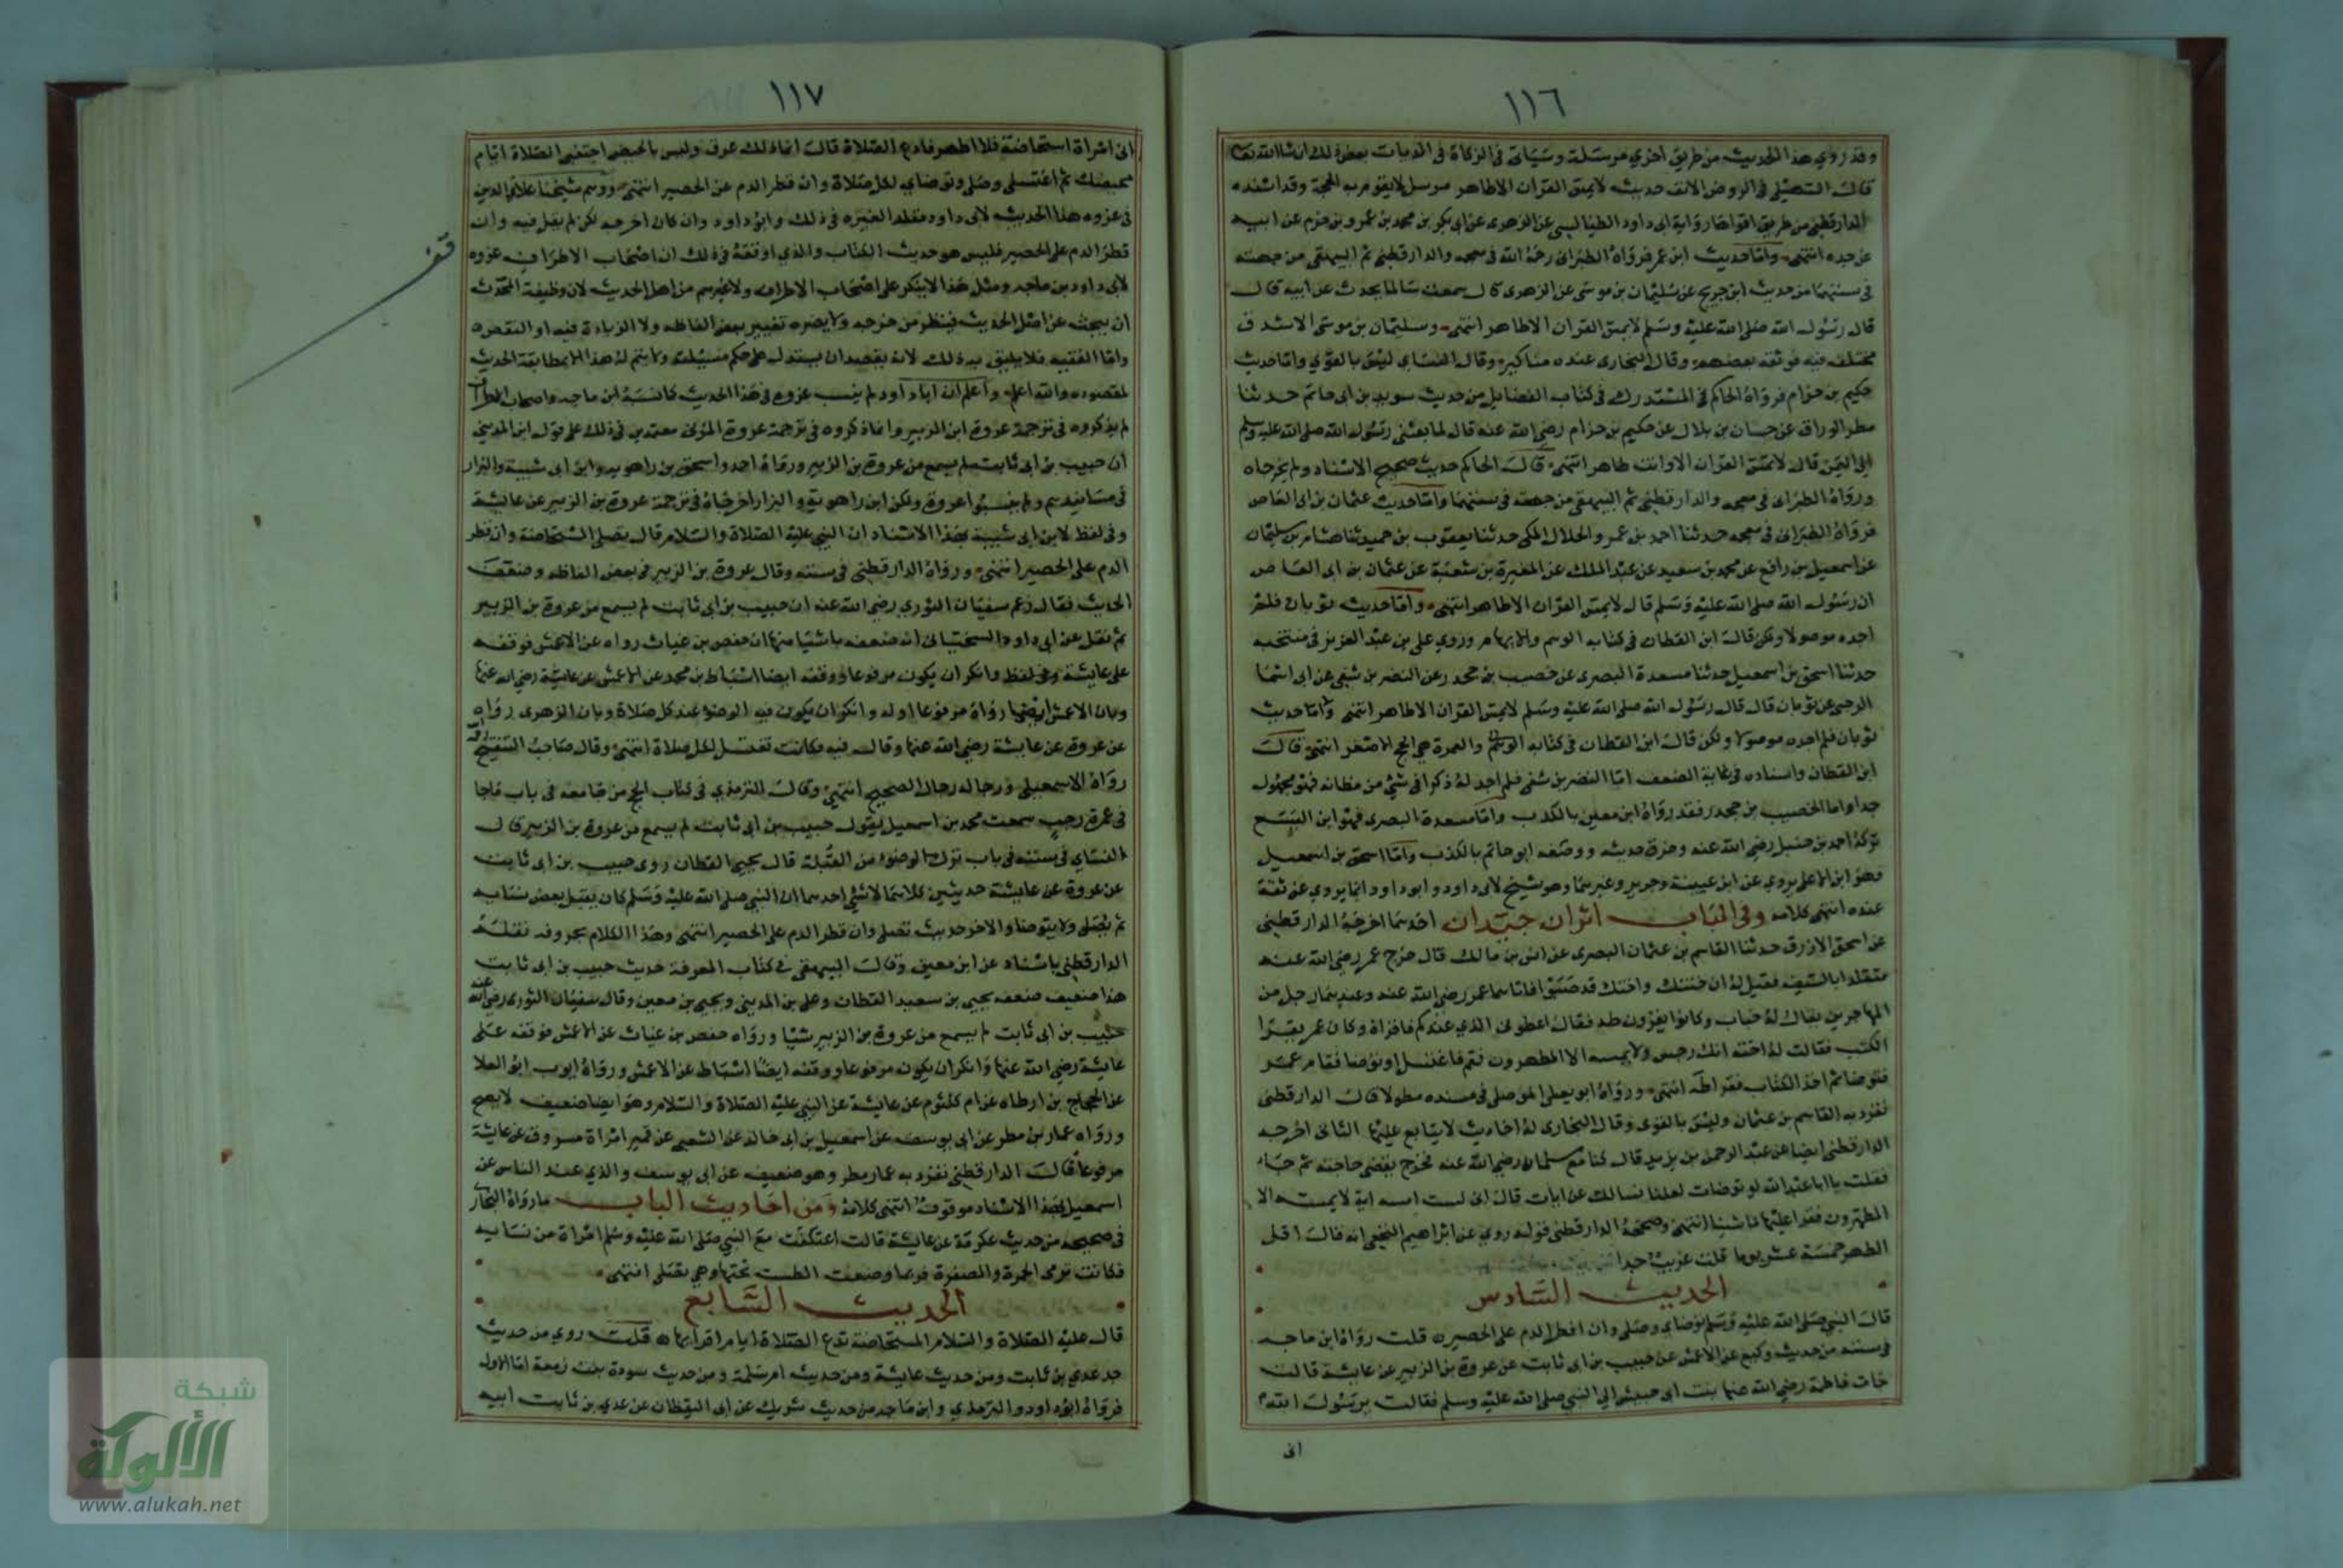 ١١٦
وقد روي هذا الحديث من طريق اخري مرسلة وسياتي في الزكاة في الديات بعض ذلك ان شا الله تعالى
قال السهيلي في الروض الانف حديث لا يمس القران الا طاهر مرسل لا يقوم به الحجة وقد اسنده
الدارقطني من طريق اقواها رواية ابي داود الطيالسي عن الزهري عن ابي بكر بن محمد بن عمرو بن حزم عن ابيه
عن جده انتهى واما حديث ابن عمر فرواه الطبراني رحمه الله في معجمه والدارقطني ثم البيهقي من جهته
في سننهما من حديث ابن جريج عن سليمان بن موسى عن الزهري قال سمعت سالما يحدث عن ابيه قال
قال رسول الله صلى الله عليه وسلم لا يمس القران الا طاهر انتهى وسليمان بن موسى الاشدق
مختلف فيه فوثقه بعضهم وقال البخاري عنده مناكير وقال النساي ليس بالقوي واما حديث
حكيم بن حزام فرواه الحاكم في المستدرك في كتاب الفضايل من حديث سويد بن ابي حاتم حدثنا
مطر الوراق عن حسان بن بلال عن حكيم بن حزام رضي الله عنه قال لما بعثني رسول الله صلى الله عليه وسلم
الي اليمن قال لا تمس القران الا وانت طاهر انتهى قال الحاكم حديث صحيح الاسناد ولم يخرجاه
ورواه الطبراني في معجمه والدارقطني ثم البيهقي من جهته في سننهما واما حديث عثمان بن ابي العاص
فرواه الطبراني في معجمه حدثنا احمد بن عمرو الخلال المكي حدثنا يعقوب بن حميد ثنا هشام بن سليمان
عن اسمعيل بن رافع عن محمد بن سعيد عن عبد الملك عن المغيرة بن شعبة عن عثمان بن ابي العاص
ان رسول الله صلى الله عليه وسلم قال لا يمس القران الا طاهر انتهى واما حديث ثوبان فلم
اجده موصولا ولكن قال ابن القطان في كتابه الوهم والايهام وروي علي بن عبد العزيز في منتخبه
حدثنا اسحق بن اسمعيل حدثنا مسعدة البصري عن خصيب بن جحدر عن النضر بن شفي عن ابي اسما
الرحبي عن ثوبان قال قال رسول الله صلى الله عليه وسلم لا يمس القران الا طاهر انتهى واما حديث
ثوبان فلم اجده موصولا ولكن قال ابن القطان في كتابه الوهم والعمرة هي الحج الاصغر انتهى قال
ابن القطان واسناده في غاية الضعف اما النضر بن شفي فلم اجد له ذكرا في شي من مظانه فهو مجهول
جدا واما الخصيب بن جحدر فقد رواه ابن معين بالكذب واما مسعدة البصري فهو ابن اليسع
تركه احمد بن حنبل رضي الله عنه وخرق حديثه ووصفه ابو حاتم بالكذب واما اسحق بن اسمعيل
فهو ابن الاعلى يروي عن ابن عيينة وجرير وغيرهما وهو شيخ لابي داود وابو داود انما يروي عن ثقة
عنده انتهى كلامه وفي الباب اثران جيدان احدهما اخرجه الدارقطني
عن اسحق الازرق حدثنا القاسم بن عثمان البصري عن انس بن مالك قال خرج عمر رضي الله عنه
متقلدا بالسيف فقيل له ان ختنك واختك قد صبئا فاتاهما عمر رضي الله عنه وعندهما رجل من
المهاجرين يقال له خباب وكانوا يقرؤن طه فقال اعطوني الذي عندكم فاقراه وكان عمر يقرا
الكتب فقالت له اخته انك رجس ولا يمسه الا المطهرون فقم فاغتسل او توضا فقام عمر
فتوضا ثم اخذ الكتاب فقرا طه انتهى ورواه ابو يعلى الموصلي في مسنده مطولا قال الدارقطني
تفرد به القاسم بن عثمان وليس بالقوي وقال البخاري له احاديث لا يتابع عليها الثاني اخرجه
الدارقطني ايضا عن عبد الرحمن بن يزيد قال كنا مع سلمان رضي الله عنه فخرج يقضي حاجته ثم جاء
فقلت يا ابا عبد الله لو توضات لعلنا نسالك عن ايات قال اني لست امسه انه لا يمسه الا
المطهرون فقرا علينا ما شينا انتهى وصححه الدارقطني قوله روي عن ابراهيم النخعي انه قال اقل
الطهر خمسة عشر يوما قلت غريب جدا
الحديث السادس
قال النبي صلى الله عليه وسلم توضاي وصلي وان قطر الدم على الحصير قلت رواه ابن ماجه
في سننه من حديث وكيع عن الاعمش عن حبيب بن ابي ثابت عن عروة بن الزبير عن عايشة قالت
جات فاطمة رضي الله عنها بنت ابي حبيش الي النبي صلى الله عليه وسلم فقالت يرسول الله
اني
١١٧
اني امراة استحاضة فلا اطهر فادع الصلاة قال انما ذلك عرق وليس بالحيض اجتنبي الصلاة ايام
محيضك ثم اغتسلي وصلي وتوضاي لكل صلاة وان قطر الدم على الحصير انتهى ووهم شيخنا علاؤ الدين
في عزوه هذا الحديث لابي داود مقلدا لغيره في ذلك وابو داود وان كان اخرجه لكن لم يقل فيه وان
قطر الدم على الحصير فليس هو حديث الكتاب والذي اوقعه في ذلك ان اصحاب الاطراف عزوه
لابي داود بن ماجه ومثل هذا لا ينكر على اصحاب الاطراف ولا غيرهم من اهل الحديث لان وظيفة المحدث
ان يبحث عن اصل الحديث فينظر من خرجه ولا يضره تغيير بعض الفاظه ولا الزيادة فيه او النقص
واما الفقيه فلا يليق به ذلك لانه يقصد ان يستدل على حكم مسيلته ولا يتم له هذا الا بمطابقة الحديث
لمقصوده والله اعلم واعلم ان ابا داود لم ينسب عروة في هذا الحديث كما نسبه ابن ماجه واصحاب الاطراف
لم يذكروه في ترجمة عروة ابن الزبير وانما ذكروه في ترجمة عروة المزني معتمدين في ذلك على قول ابن المديني
ان حبيب بن ابي ثابت لم يسمع من عروة بن الزبير ورواه احمد واسحق بن راهويه وابن ابي شيبة والبزار
في مسانيدهم ولم ينسبوا عروة ولكن ابن راهوية والبزار اخرجاه في ترجمة عروة بن الزبير عن عايشة
وفي لفظ لابن ابي شيبة بهذا الاسناد ان النبي عليه الصلاة والسلام قال تصلي المستحاضة وان قطر
الدم على الحصير انتهى ورواه الدارقطني في سننه وقال عروة بن الزبير في بعض الفاظه وضعف
الحديث فقال زعم سفيان الثوري رضي الله عنه ان حبيب بن ابي ثابت لم يسمع من عروة بن الزبير
ثم نقل عن ابي داود السختياني انه ضعفه باشيا منها ان حفص بن غياث رواه عن الاعمش فوقفه
على عايشة وفي لفظ وانكر ان يكون مرفوعا ووقفه ايضا اسباط بن محمد عن الاعمش عن عايشة رضي الله عنها
وبان الاعمش ايضا رواه مرفوعا اوله وانكر ان يكون فيه الوضوء عند كل صلاة وبان الزهري رواه
عن عروة عن عايشة رضي الله عنها وقال فيه فكانت تغتسل لكل صلاة انتهى وقال صاحب التنقيح
رواه الاسمعيلي ورجاله رجال الصحيح انتهى وقال الترمذي في كتاب الحج من جامعه في باب ماجا
في عمرة رجب سمعت محمد بن اسمعيل يقول حبيب بن ابي ثابت لم يسمع من عروة بن الزبير قال
النساي في سننه في باب ترك الوضوء من القبلة قال يحيى القطان روى حبيب بن ابي ثابت
عن عروة عن عايشة حديثين كلاهما لا شي احدهما ان النبي صلى الله عليه وسلم كان يقبل بعض نسايه
ثم يصلي ولا يتوضا والاخر حديث تصلي وان قطر الدم على الحصير انتهى وهذا الكلام بحروفه نقله
الدارقطني باسناد عن ابن معين وقال البيهقي في كتاب المعرفة حديث حبيب بن ابي ثابت
هذا ضعيف ضعفه يحيى بن سعيد القطان وعلي بن المديني ويحيى بن معين وقال سفيان الثوري رضي الله عنه
حبيب بن ابي ثابت لم يسمع من عروة بن الزبير شيا ورواه حفص بن غياث عن الاعمش فوقفه على
عايشة رضي الله عنها وانكر ان يكون مرفوعا ووقفه ايضا اسباط عن الاعمش ورواه ايوب ابو العلا
عن الحجاج بن ارطاه عن ام كلثوم عن عايشة عن النبي عليه الصلاة والسلام وهو ايضا ضعيف لا يصح
ورواه عمار بن مطر عن ابي يوسف عن اسمعيل بن ابي خالد عن الشعبي عن قمير امراة مسروق عن عايشة
مرفوعا قال الدارقطني تفرد به عمار مطر وهو ضعيف عن ابي يوسف والذي عند الناس عن
اسمعيل بهذا الاسناد موقوف انتهى كلامه ومن احاديث الباب ما رواه البخاري
في صحيحه من حديث عكرمة عن عايشة قالت اعتكفت مع النبي صلى الله عليه وسلم امراة من نسايه
فكانت ترى الحمرة والصفرة فربما وضعت الطست تحتها وهي تصلي انتهى
الحديث السابع
قال عليه الصلاة والسلام المستحاضة تدع الصلاة ايام اقرايها قلت روي من حديث
جد عدي بن ثابت ومن حديث عايشة ومن حديث ام سلمة ومن حديث سودة بنت زمعة اما الاول
فرواه ابو داود والترمذي وابن ماجه من حديث شريك عن ابي اليقظان عن عدي بن ثابت ابيه
قف
شبكة
الألوكة
www.alukah.net